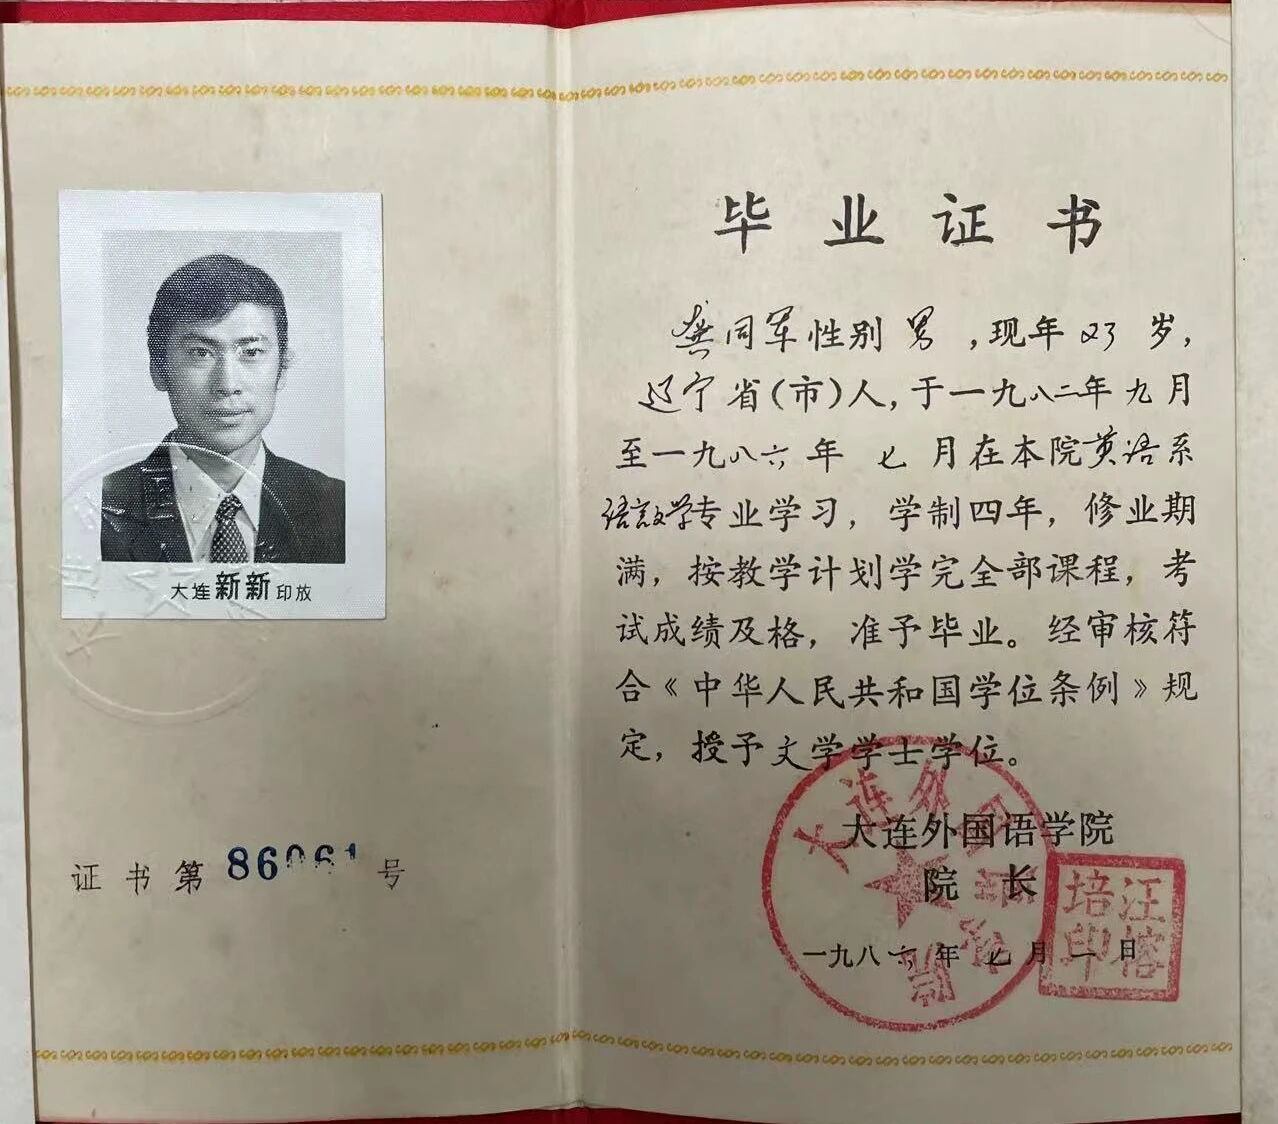 大连新新印放
证书第 86061 号
毕业证书
龚同军性别 男 ,现年 23 岁,
辽宁省(市)人,于一九八二年九月
至一九八六年 七月在本院英语系
语言文学专业学习,学制四年,修业期
满,按教学计划学完全部课程,考
试成绩及格,准予毕业。经审核符
合《中华人民共和国学位条例》规
定,授予文学学士学位。
大连外国语学院
院 长
汪榕培印
一九八六年七月一日
大连外国语学院